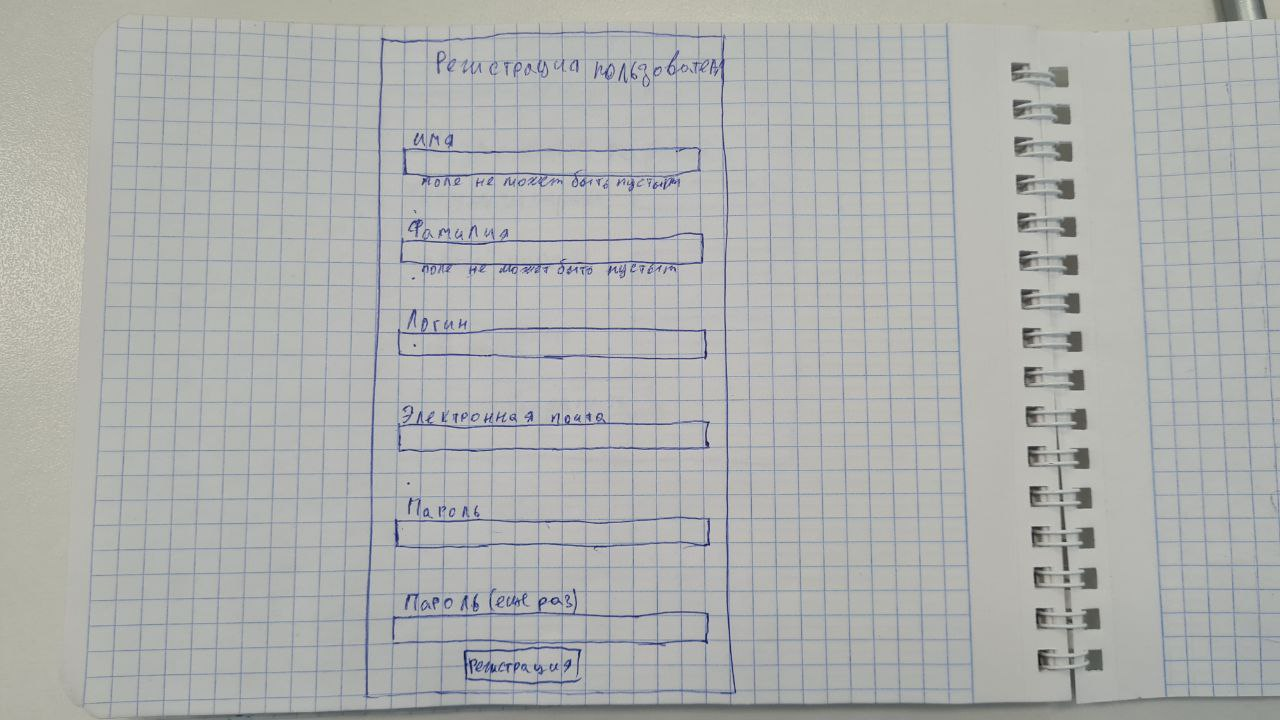 Регистрация пользовател
имя
поле не может быть пустым
Фамилия
поле не может быть пустым
Логин
Электронная почта
Пароль
Пароль (еще раз)
Регистрация